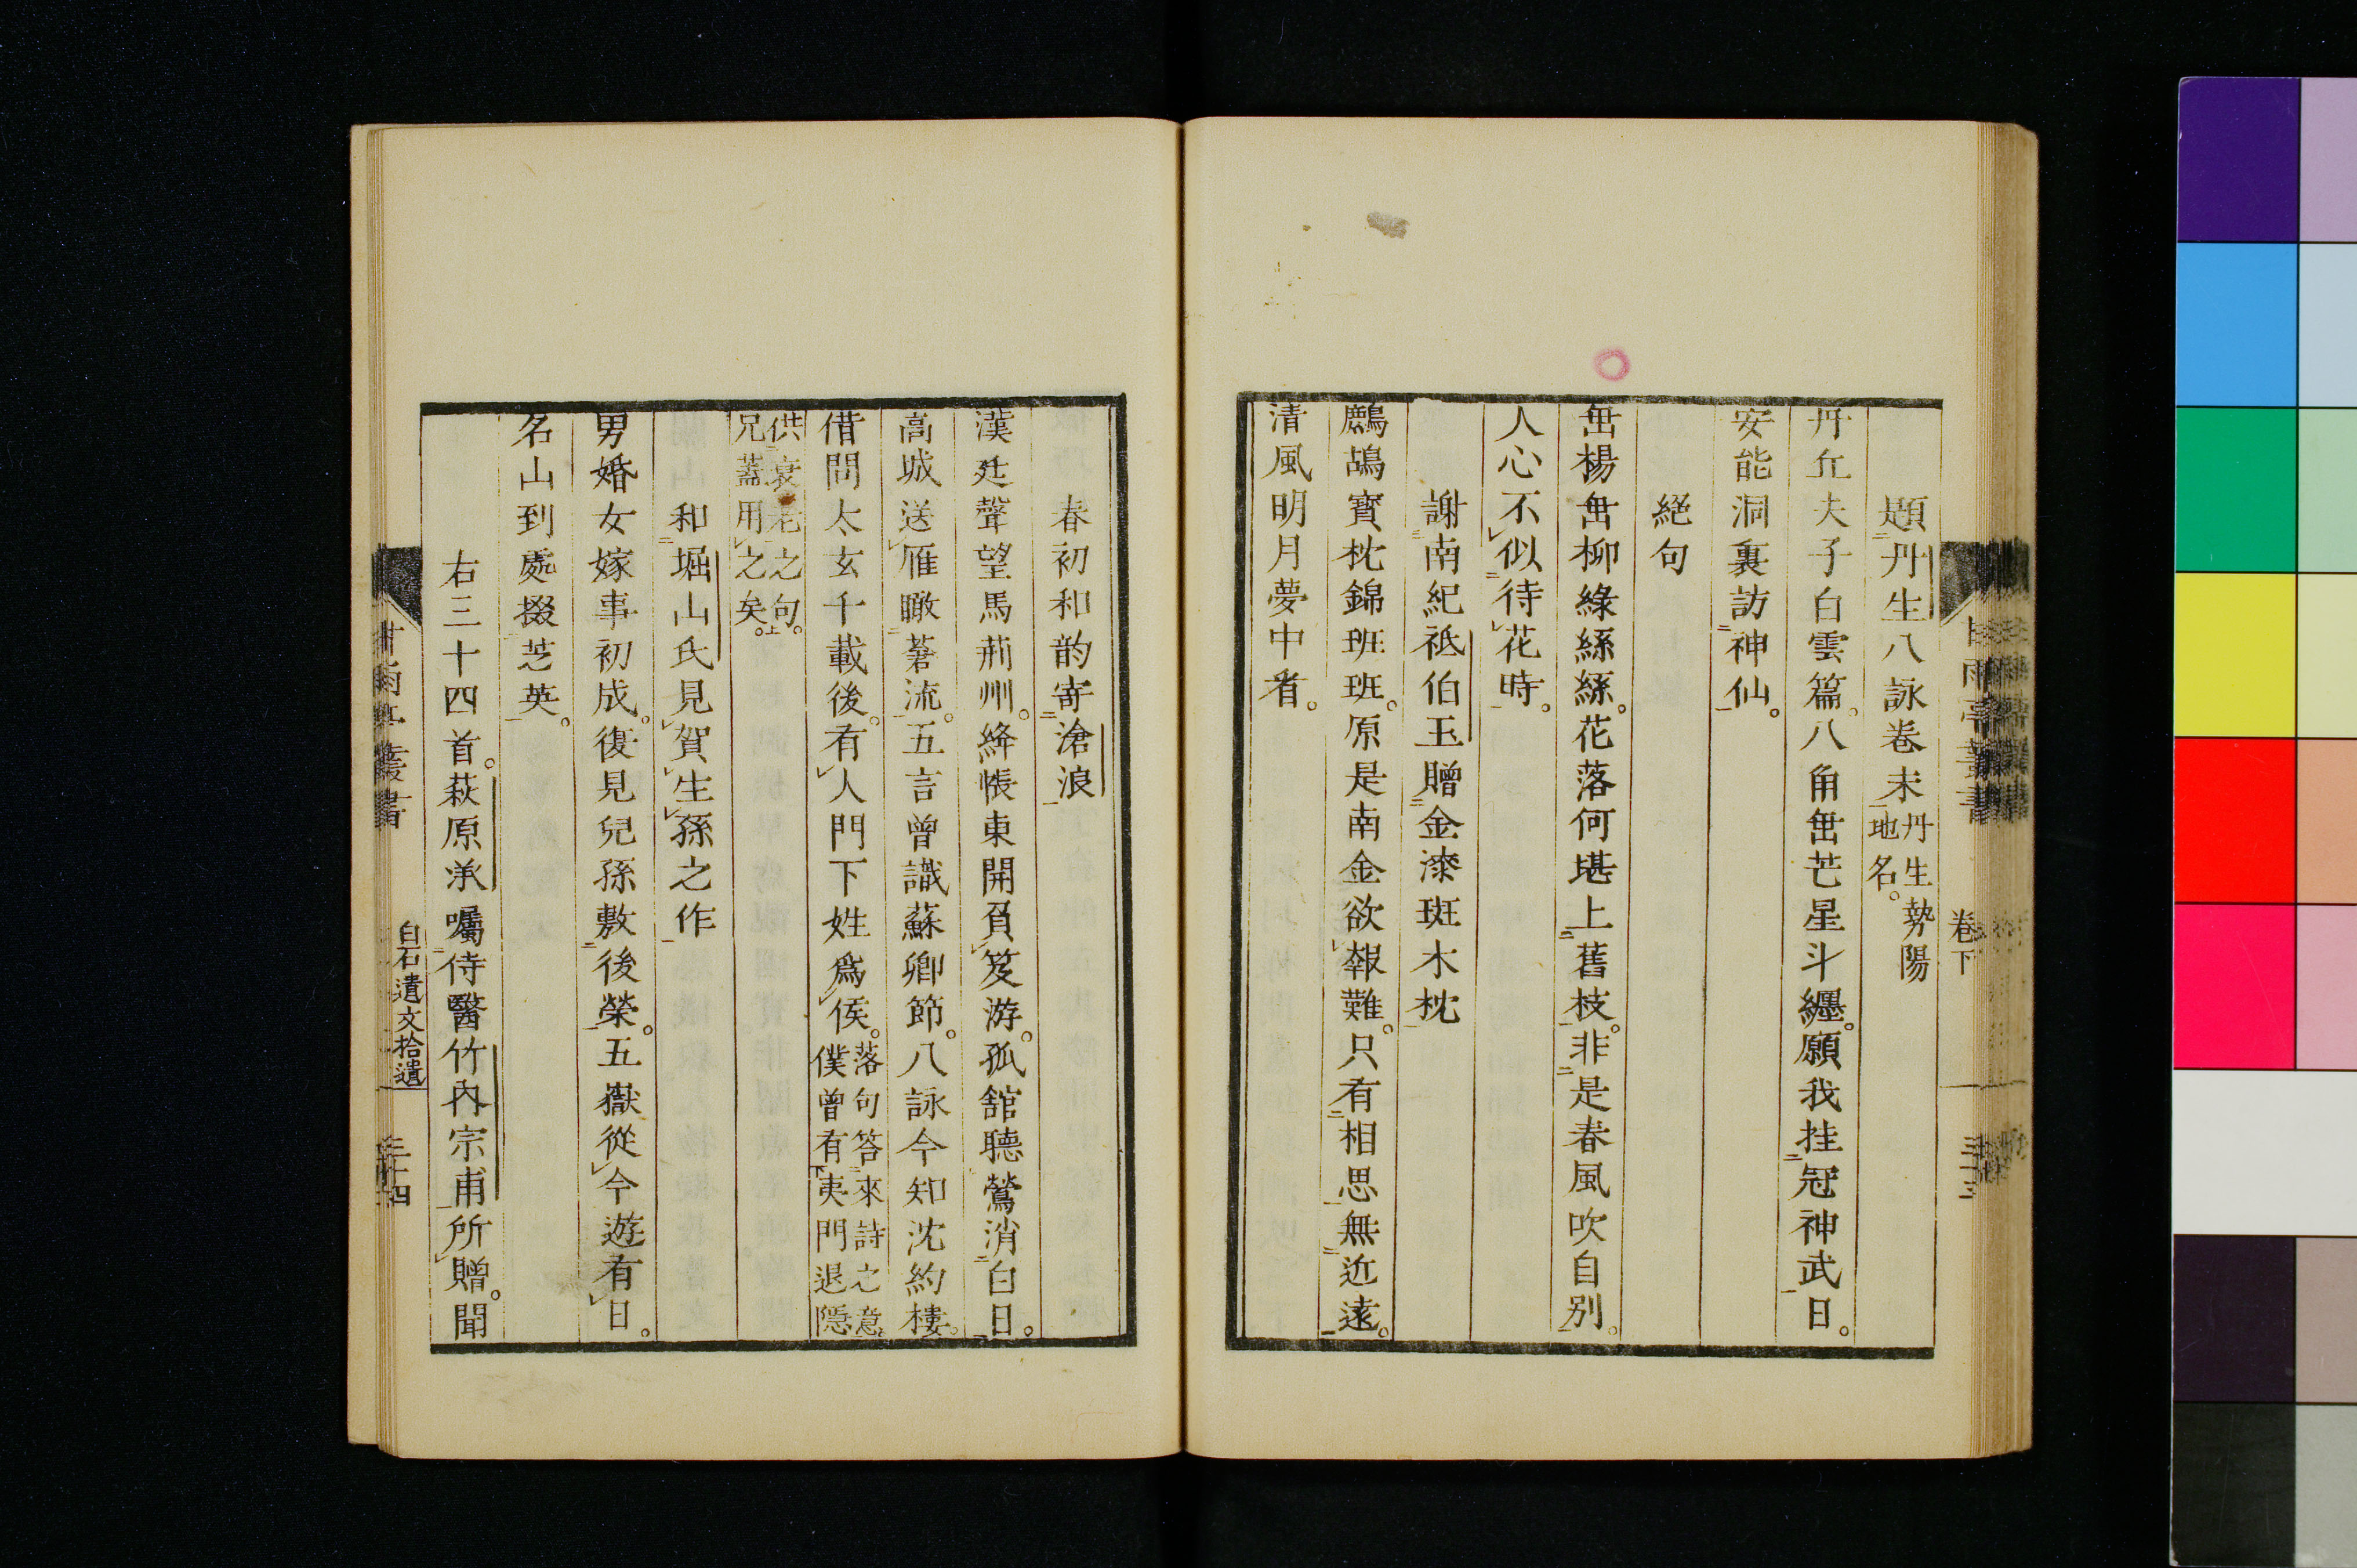 題丹生八詠卷末丹生勢陽
地名。
丹丘夫子白雲篇。八角垂芒星斗纏。願我挂冠神武日。
安能洞裏訪神仙。
絕句
垂楊垂柳綠絲絲。花落何堪上舊枝。非是春風吹自別。
人心不似待花時。
謝南紀祗伯玉贈金漆斑木枕
鷓鴣寶枕錦班班。原是南金欲報難。只有相思無近遠。
清風明月夢中看。
卷下
三十三
春初和韵寄滄浪
漢廷聲望馬荊州。絳帳東開負笈游。孤舘聽鶯消白日。
高城送雁瞰蒼流。五言曾識蘇卿節。八詠今知沈約樓。
借問太玄千載後。有人門下姓爲侯。落句答來詩之意。
僕曾有夷門退隱
供衰老之句。
兄蓋用之矣。
和堀山氏見賀生孫之作
男婚女嫁事初成。復見兒孫敷後榮。五嶽從今遊有日。
名山到處掇芝英。
右三十四首。萩原承囑侍醫竹內宗甫所贈。聞
甘雨亭叢書
白石遺文拾遺
三十四